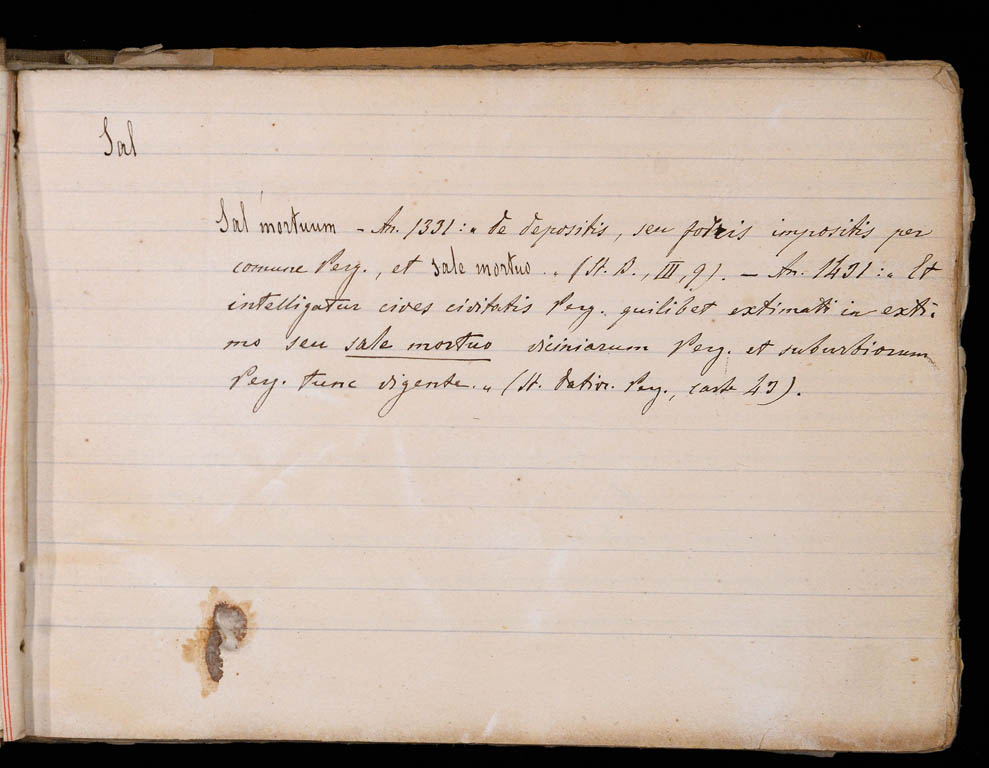 Sal
Sal mortuum – An. 1331: „ de depositis, seu fodris impositis per
comune Perg., et sale mortuo. „ (St. B., III, 9). – An. 1431: „ Et
intelligatur cives civitatis Perg. quilibet extimati in exti-
mo seu sale mortuo viciniarum Perg. et suburbiorum
Perg. tunc vigente. „ (St. datior. Perg., carte 43).